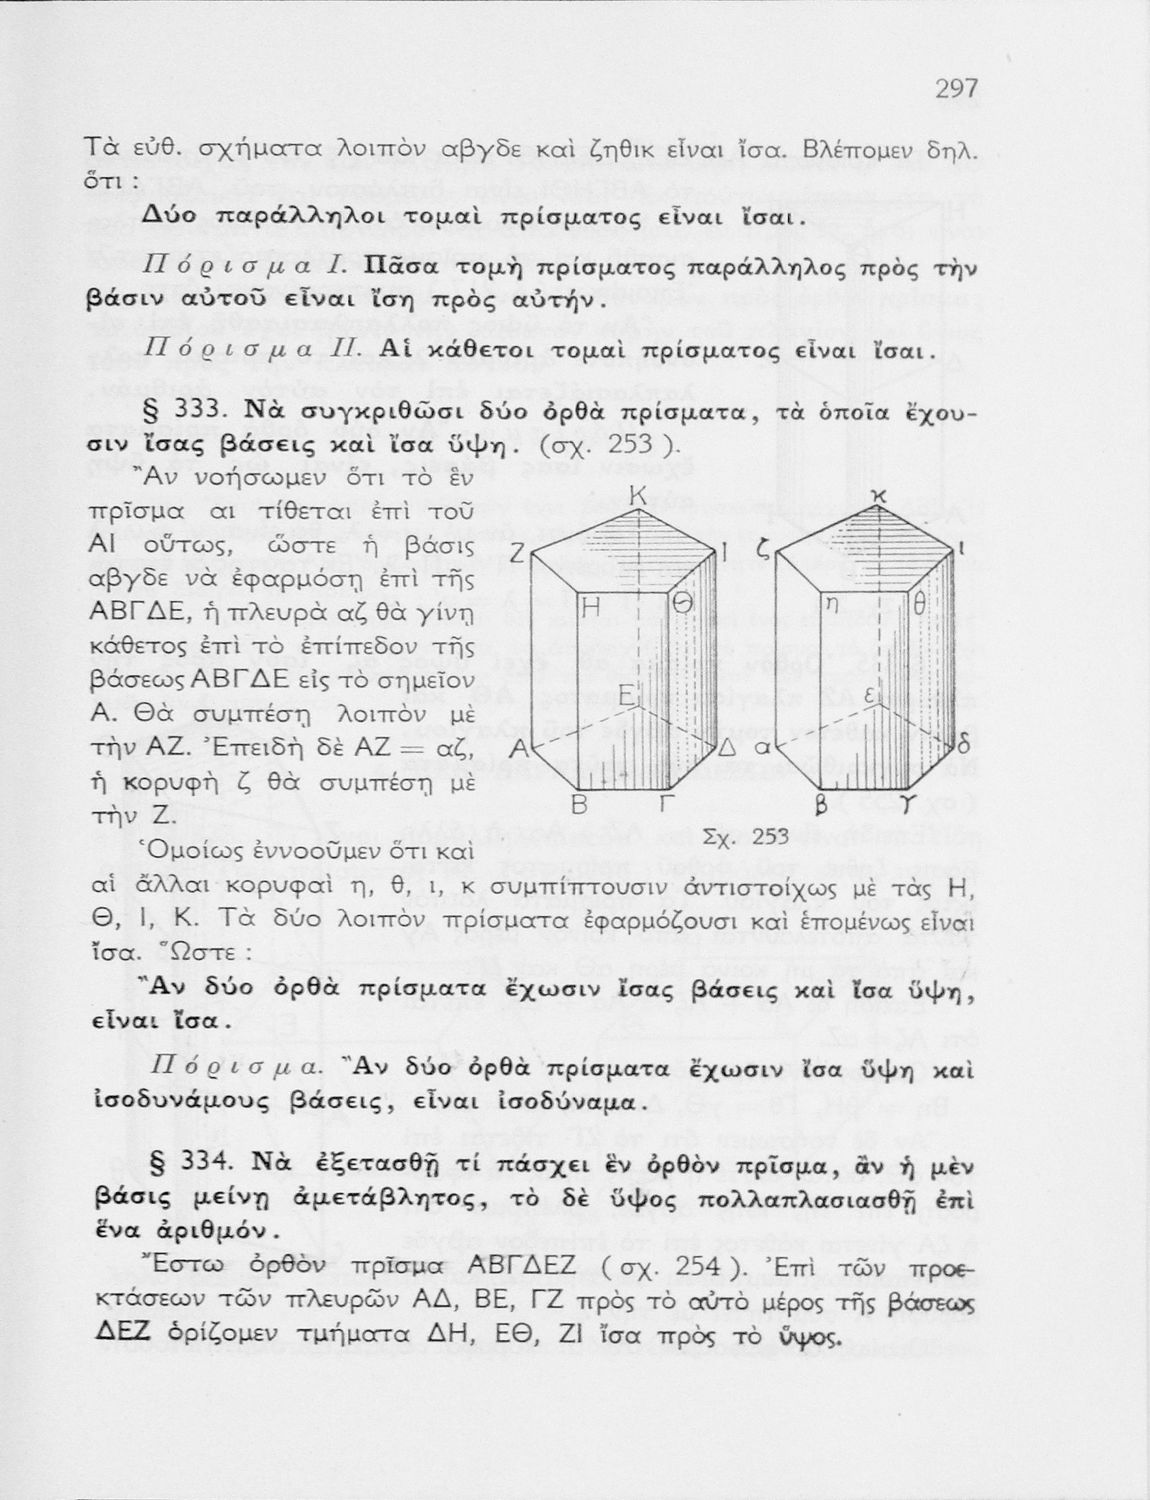 297
Τὰ εὐθ. σχήματα λοιπὸν αβγδε καὶ ζηθικ εἶναι ἴσα. Βλέπομεν δηλ.
ὅτι :
Δύο παράλληλοι τομαὶ πρίσματος εἶναι ἴσαι.
Πόρισμα I. Πᾶσα τομὴ πρίσματος παράλληλος πρὸς τὴν
βάσιν αὐτοῦ εἶναι ἴση πρὸς αὐτήν.
Πόρισμα II. Αἱ κάθετοι τομαὶ πρίσματος εἶναι ἴσαι.
§ 333. Νὰ συγκριθῶσι δύο ὀρθὰ πρίσματα, τὰ ὁποῖα ἔχου-
σιν ἴσας βάσεις καὶ ἴσα ὕψη. (σχ. 253 ).
Ἂν νοήσωμεν ὅτι τὸ ἓν
πρῖσμα αι τίθεται ἐπὶ τοῦ
ΑΙ οὕτως, ὥστε ἡ βάσις
αβγδε νὰ ἐφαρμόσῃ ἐπὶ τῆς
ΑΒΓΔΕ, ἡ πλευρὰ αζ θὰ γίνῃ
κάθετος ἐπὶ τὸ ἐπίπεδον τῆς
βάσεως ΑΒΓΔΕ εἰς τὸ σημεῖον
Α. Θὰ συμπέσῃ λοιπὸν μὲ
τὴν ΑΖ. Ἐπειδὴ δὲ ΑΖ = αζ,
ἡ κορυφὴ ζ θὰ συμπέσῃ μὲ
τὴν Ζ.
Κ
Ζ
Ι
Η
Θ
Ε
Α
Δ
Β
Γ
κ
ζ
ι
η
θ
ε
α
δ
β
γ
Σχ. 253
Ὁμοίως ἐννοοῦμεν ὅτι καὶ
αἱ ἄλλαι κορυφαὶ η, θ, ι, κ συμπίπτουσιν ἀντιστοίχως μὲ τὰς Η,
Θ, Ι, Κ. Τὰ δύο λοιπὸν πρίσματα ἐφαρμόζουσι καὶ ἑπομένως εἶναι
ἴσα. Ὥστε :
Ἂν δύο ὀρθὰ πρίσματα ἔχωσιν ἴσας βάσεις καὶ ἴσα ὕψη,
εἶναι ἴσα.
Πόρισμα. Ἂν δύο ὀρθὰ πρίσματα ἔχωσιν ἴσα ὕψη καὶ
ἰσοδυνάμους βάσεις, εἶναι ἰσοδύναμα.
§ 334. Νὰ ἐξετασθῇ τί πάσχει ἓν ὀρθὸν πρῖσμα, ἂν ἡ μὲν
βάσις μείνῃ ἀμετάβλητος, τὸ δὲ ὕψος πολλαπλασιασθῇ ἐπὶ
ἕνα ἀριθμόν.
Ἔστω ὀρθὸν πρῖσμα ΑΒΓΔΕΖ ( σχ. 254 ). Ἐπὶ τῶν προε-
κτάσεων τῶν πλευρῶν ΑΔ, ΒΕ, ΓΖ πρὸς τὸ αὐτὸ μέρος τῆς βάσεως
ΔΕΖ ὁρίζομεν τμήματα ΔΗ, ΕΘ, ΖΙ ἴσα πρὸς τὸ ὕψος.